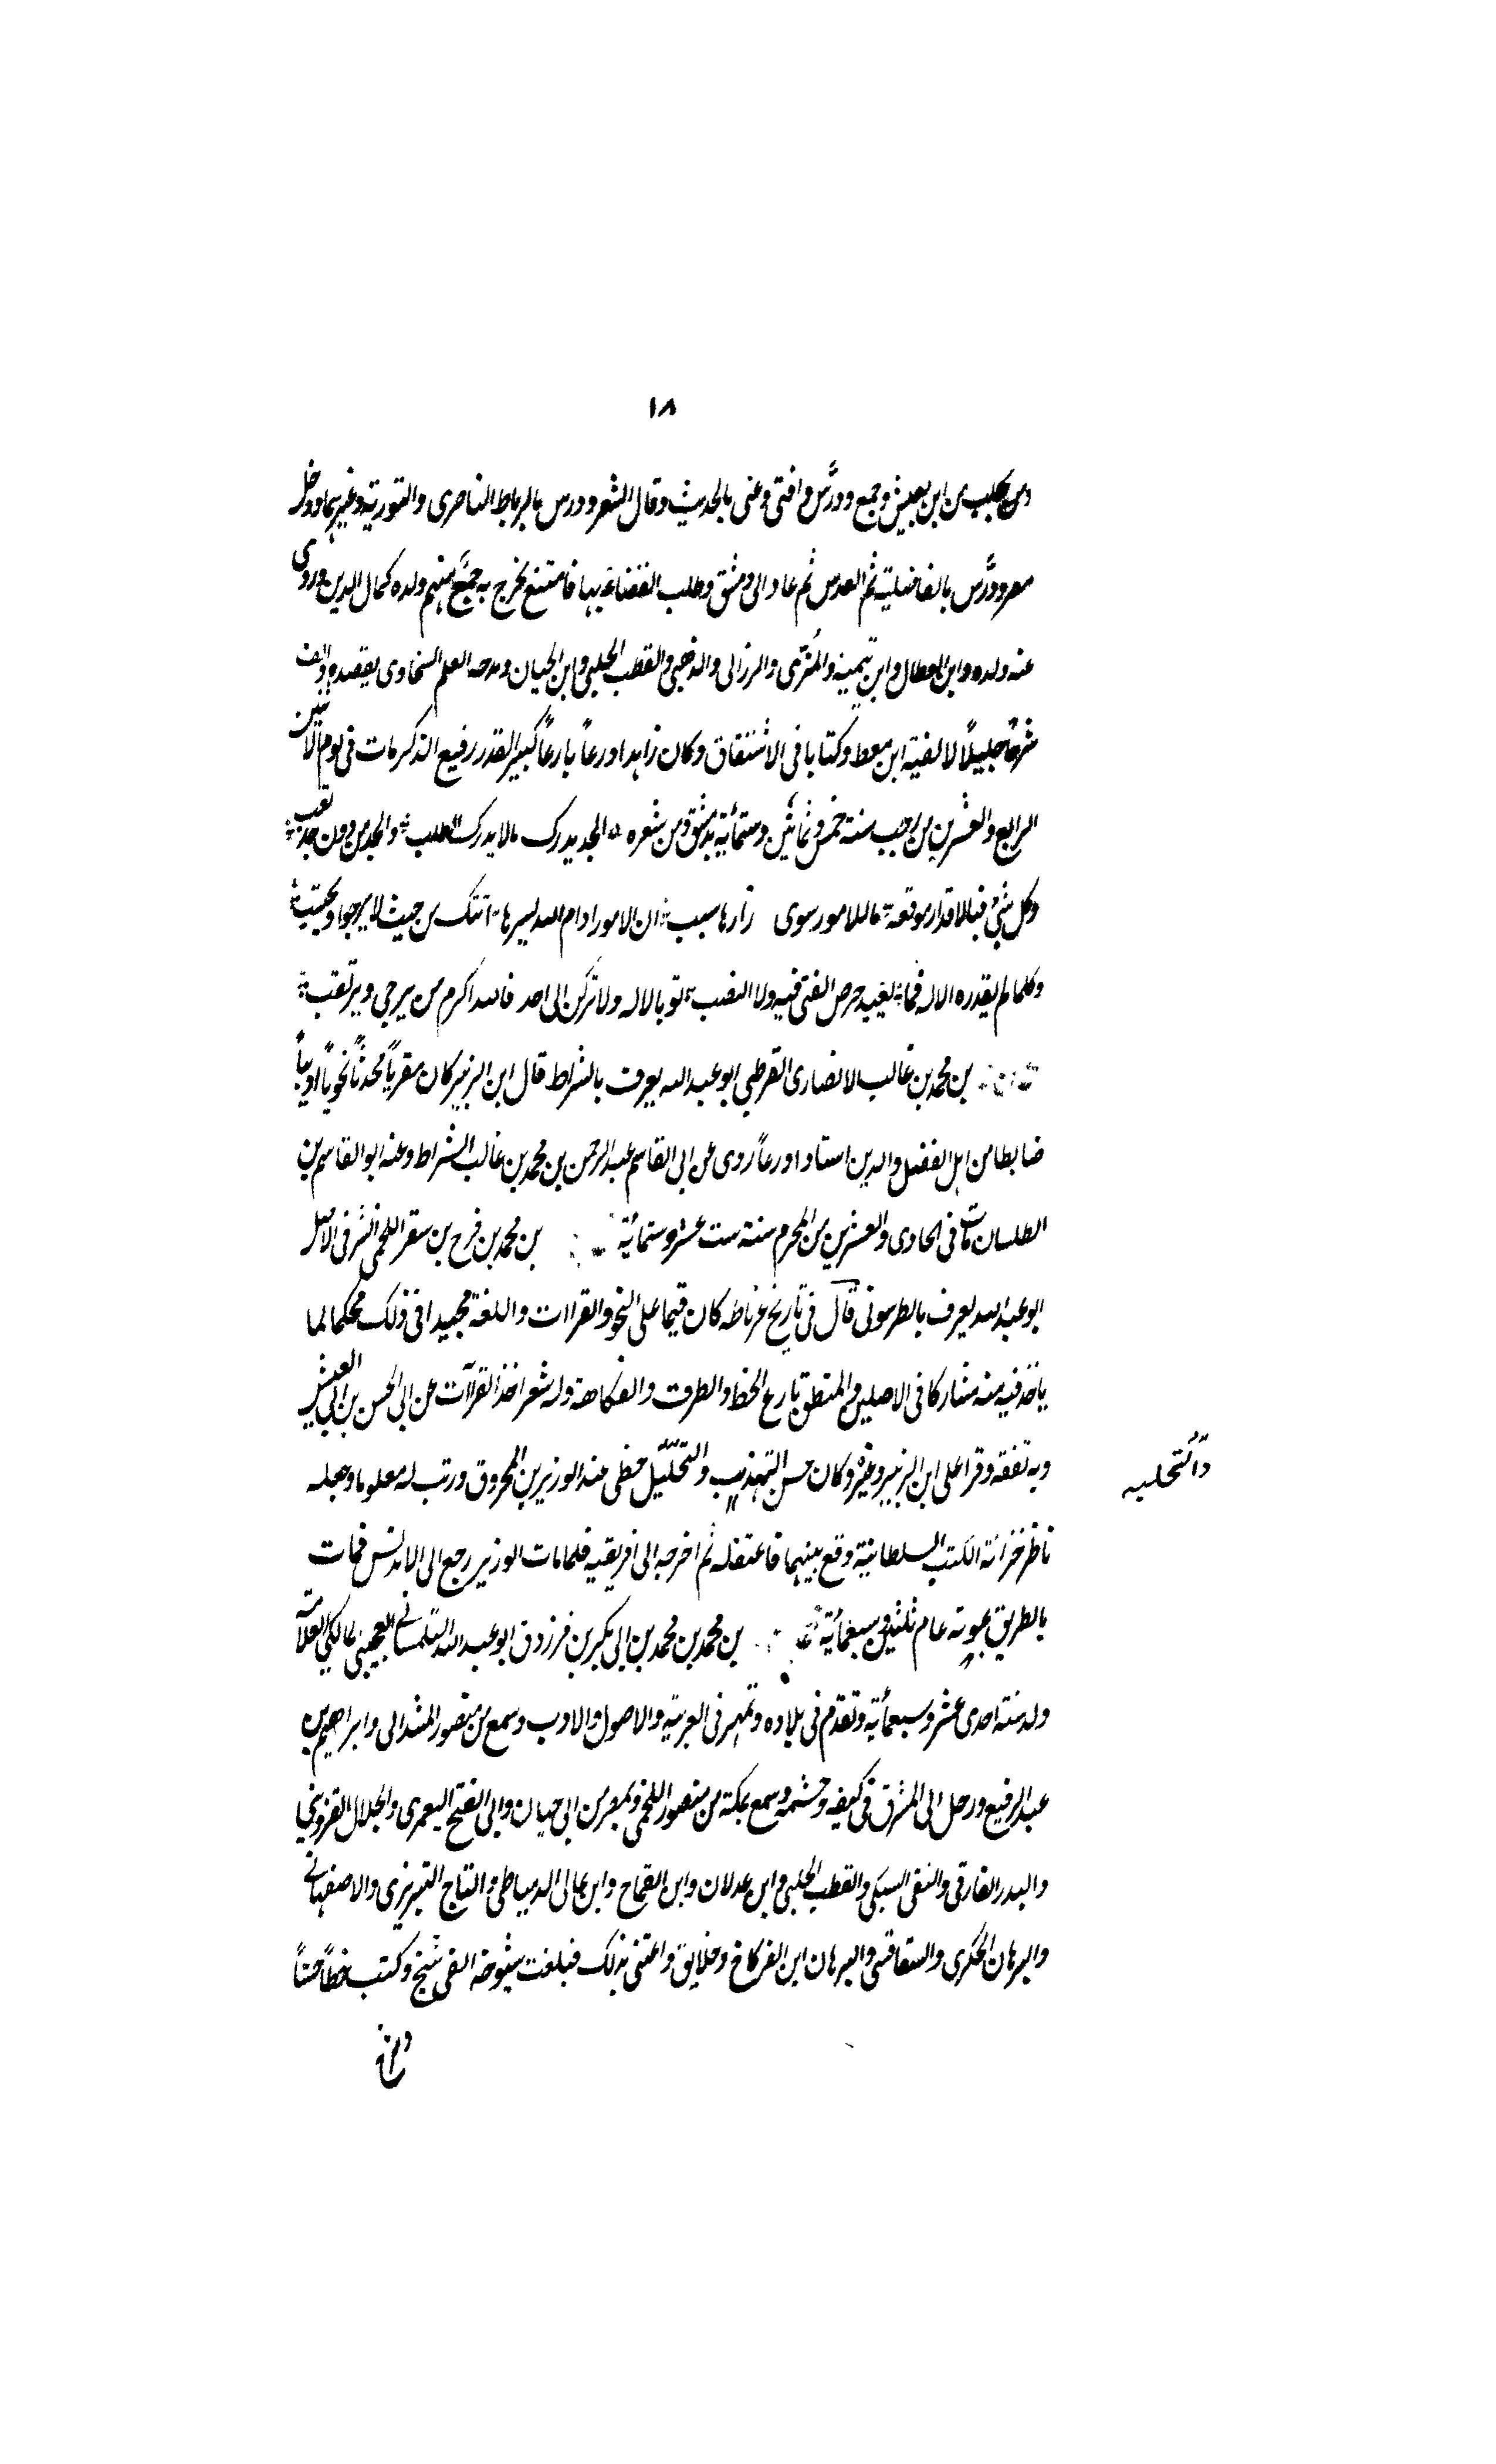 ١٨
ومن بحلب من ابن يعيش وجمع ودرَّس وافتى وعنى بالحديث وقال الشعر ودرس بالرباط الناصرى والنورية وغيرهما ودخل
مصر ودرَّس بالفاضلية ثم القدس ثم عاد الى دمشق وطلب القضاء بها فامتنع تخرج به جمعٌ منهم ولده كمال الدين وروى
عنه ولده وابن العطار وابن تيمية والمزى والبرزالى والذهبى والقطب الحلبى وابن الحيان ومدحه العلم السخاوى بقصيدة والف
شرحًا جليلًا لالفية ابن معط وكتابا فى الاشتقاق وكان زاهدا ورعاً بارعاً كبير القدر رفيع الذكر مات فى يوم الاثنين
الرابع والعشرين من رجب سنة خمس وثمانين وستمائة بدمشق ومن شعره الجد يدرك مالا يدرك الطلب والجد من دون جد تعب
وكل شئ فبالاقدار موقعه ماللامور سوى اقدارها سبب ان الامور اذا ما الله يسرها اتتك من حيث لا يرجوا ويحتسب
وكلما لم يقدره الاله فما يفيد حرص الفتى فيه ولا النصب ثق بالاله ولا تركن الى احد فالله اكرم من يرجى ويرتقب
بن محمد بن غالب الانصارى القرطبى ابو عبد الله يعرف بالشراط قال ابن الزبير كان مقرياً محدثاً نحوياً اديباً
ضابطا من اهل الفضل والدين استاذا ورعاً روى عن ابى القاسم عبد الرحمن بن محمد بن غالب الشراط وعنه ابو القاسم بن
الطلسان مات فى الحادى والعشرين من المحرم سنة ست عشر وستمائة بن محمد بن فرح بن سقر اللخمى الشرفى الاصل
ابو عبد الله يعرف بالطرسونى قال فى تاريخ غرناطه كان قيما على النحو والقراات واللغة مجيدا فى ذلك محكما لما
ياخذ فيه منه مشاركا فى الاصلين والمنطق بارع الخط والظرف والفكاهة وله شعر اخذ القراآت عن ابى الحسن بن ابى العيش
وبه تفقه وقرا على ابن الزبير وغيره وكان حسن التهذيب والتحليل حظى عند الوزير بن المحروق ورتب له معلوما وجعله
والتحليه
ناظر خزانة الكتب السلطانية وقع بينهما فاعتقله ثم اخرجه الى افريقيه فلما مات الوزير رجع الى الاندلس فمات
بالطريق ببونه عام ثلثين وسبعمائة بن محمد بن محمد بن ابى بكر بن فرزدق ابو عبد الله التلمسانى العجيسى المالكى العلامة
ولد سنة احدى عشر وسبعمائة وتقدم فى بلاده وتمهر فى العربية والاصول والادب وسمع من منصور المشدالى وابراهيم بن
عبد الرفيع ورحل الى المشرق فى كنفه وحشمه وسمع بمكة من منصور اللخمى وبمصر من ابى حيان وابى الفتح اليعمرى والجلال القزوينى
والبدر الفارقى والتقى السبكى والقطب الحلبى وابن عدلان وابن القماح وابن عالى الدمياطى والتاج التبريزى والاصفهانى
والبرهان الحكرى والسفاقسى والبرهان ابن الفركاح وخلايق واعتنى بذلك فبلغت شيوخه الفى شيخ وكتب خطاً حسناً